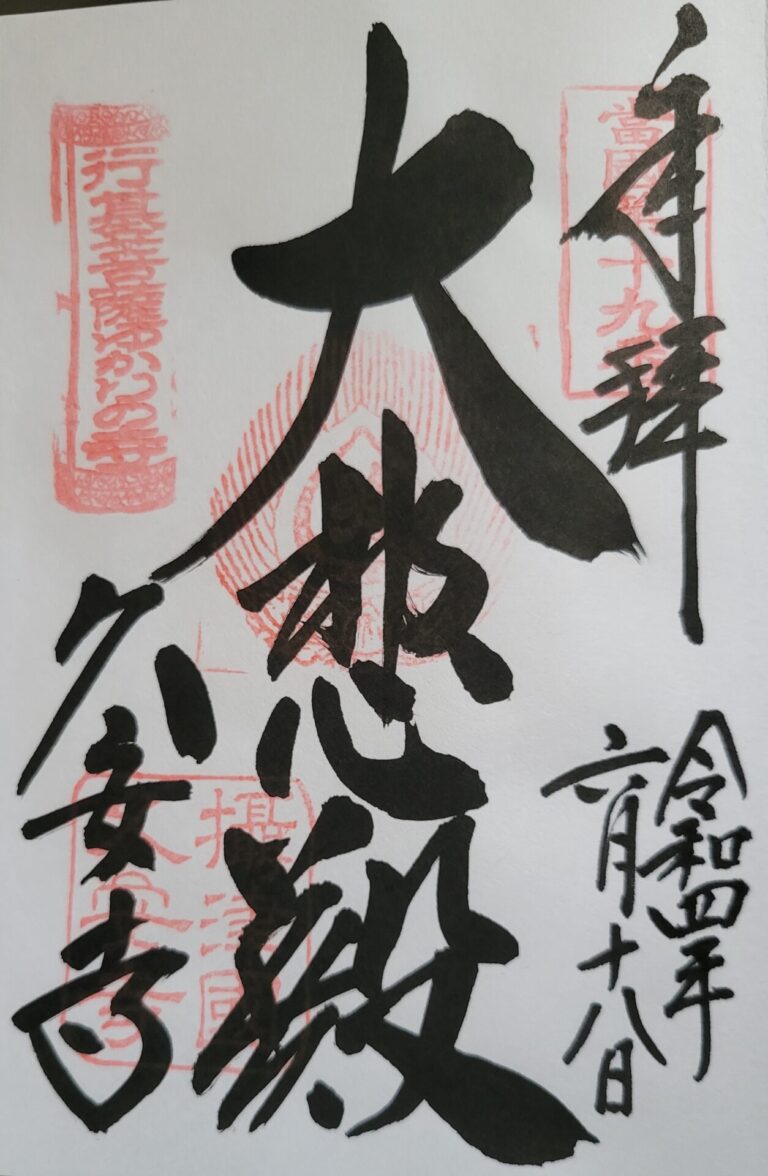 奉拝
當國第十九番
令和四年
六月十八日
大悲殿
行基菩薩ゆかりの寺
久安寺
攝津國
久安寺